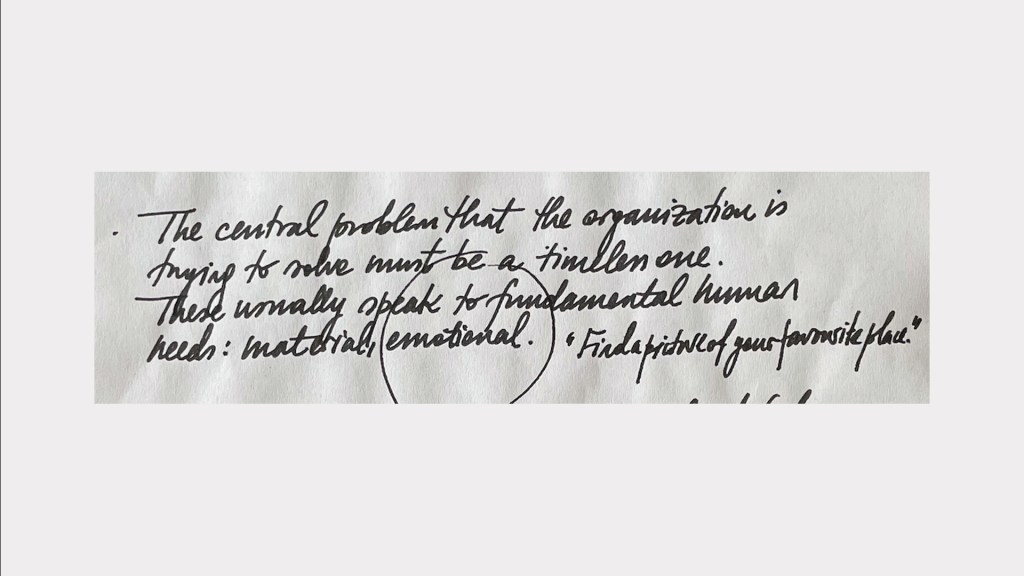 · The central problem that the organization is
trying to solve must be a timeless one.
These usually speak to fundamental human
needs: material, emotional. "Find a picture of your favourite place."